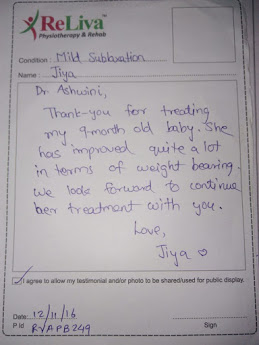 ReLiva
Physiotherapy & Rehab
Condition : Mild Subluxation
Name : Jiya
Dr Ashwini,
Thank-you for treating
my 9-month old baby. She
has improved quite a lot
in terms of weight bearing.
We look forward to continue
her treatment with you.
Love,
Jiya
I agree to allow my testimonial and/or photo to be shared/used for public display.
Date: 12/11/16
P Id
Sign